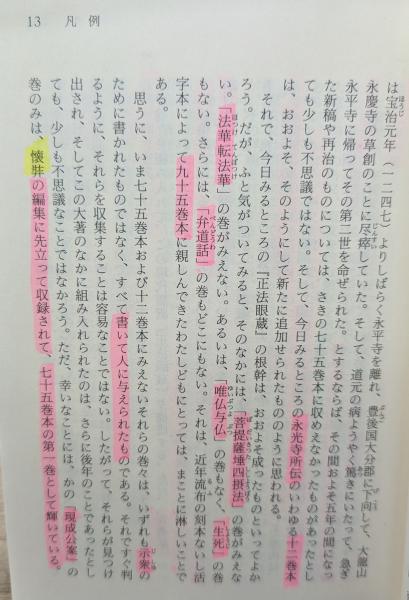 13 凡例
は宝治元年（一二四七）よりしばらく永平寺を離れ、豊後国大分郡に下向して、大龍山
永慶寺の草創のことに尽瘁していた。そして、道元の病ようやく篤きにいたって、急ぎ
永平寺に帰ってその第二世を命ぜられた。とするならば、その間およそ五年の間になっ
た新稿や再治のものについては、さきの七十五巻本に収めえなかったものがあったとし
ても少しも不思議ではない。そして、今日みるところの永光寺所伝のいわゆる十二巻本
は、おおよそ、そのようにして新たに追加せられたもののように思われる。
それで、今日みるところの『正法眼蔵』の根幹は、おおよそ成ったものといってよか
ろう。だが、ふと気がついてみると、そのなかには、「菩提薩埵四摂法」の巻がみえな
い。「法華転法華」の巻がみえない。あるいは、「唯仏与仏」の巻もなく、「生死」の巻
もない。さらには、「弁道話」の巻もどこにもない。それは、近年流布の刻本ないし活
字本によって九十五巻本に親しんできたわたしどもにとっては、まことに淋しいことで
ある。
思うに、いま七十五巻本および十二巻本にみえないそれらの巻々は、いずれも示衆の
ために書かれたものではなく、すべて書いて人に与えられたものである。それですぐ判
るように、それらを収集することは容易なことではない。したがって、それらが見つけ
出され、そしてこの大著のなかに組み入れられたのは、さらに後年のことであったとし
ても、少しも不思議なことではなかろう。ただ、幸いなことには、かの「現成公案」の
巻のみは、懐弉の編集に先立って収録されて、七十五巻本の第一巻として輝いている。